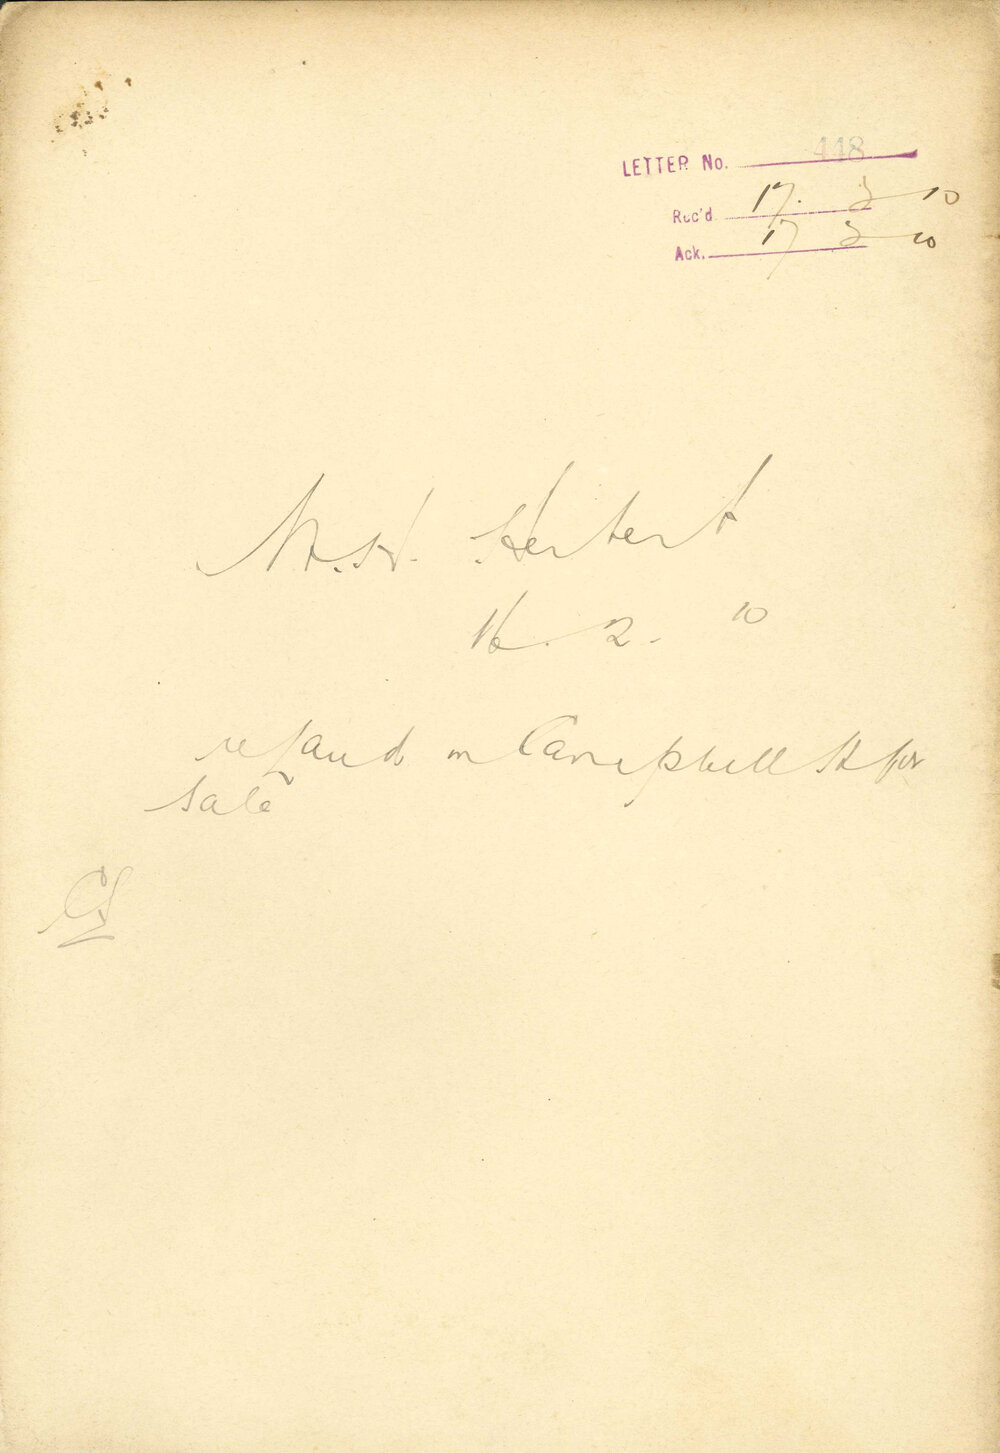 LETTER No. 448
Rec'd 17. 2 10
Ack. 17 2 10
H. Herbert
16. 2. 10
re land in Campbell St for
sale